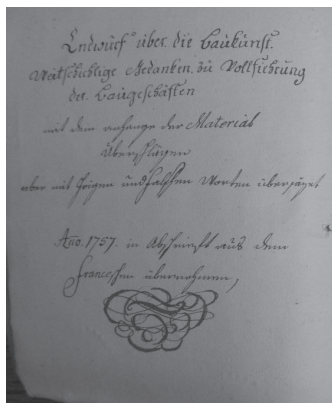 Entwurf über die Baukunst.
Weitschichtige Gedanken zu Vollführung
der Baugeschäften
mit dem anhange der Material
Überschlägen
aber mit und falschen Worten übersäzet
Ano. 1757. in Abschrifft aus dem
übernohmen,